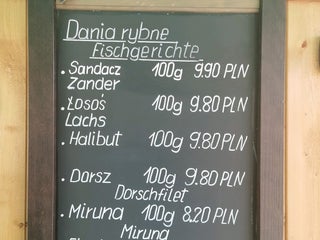 Dania rybne
Fischgerichte
• Sandacz 100g 9.90 PLN
Zander
• Łosoś 100g 9.80 PLN
Lachs
• Halibut 100g 9.80 PLN
• Dorsz 100g 9.80 PLN
Dorschfilet
• Miruna 100g 8.20 PLN
Miruna